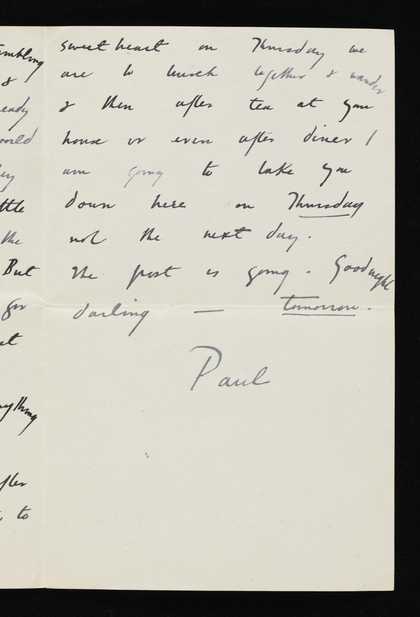 umbling
&
eady
ould
ttle
the
But
for
at
ything
fter
to
sweetheart on Thursday we
are to lunch together & wander
& then after tea at your
house or even after diner I
am going to take you
down here on Thursday
not the next day.
The post is going. Goodnight
darling — tomorrow.
Paul